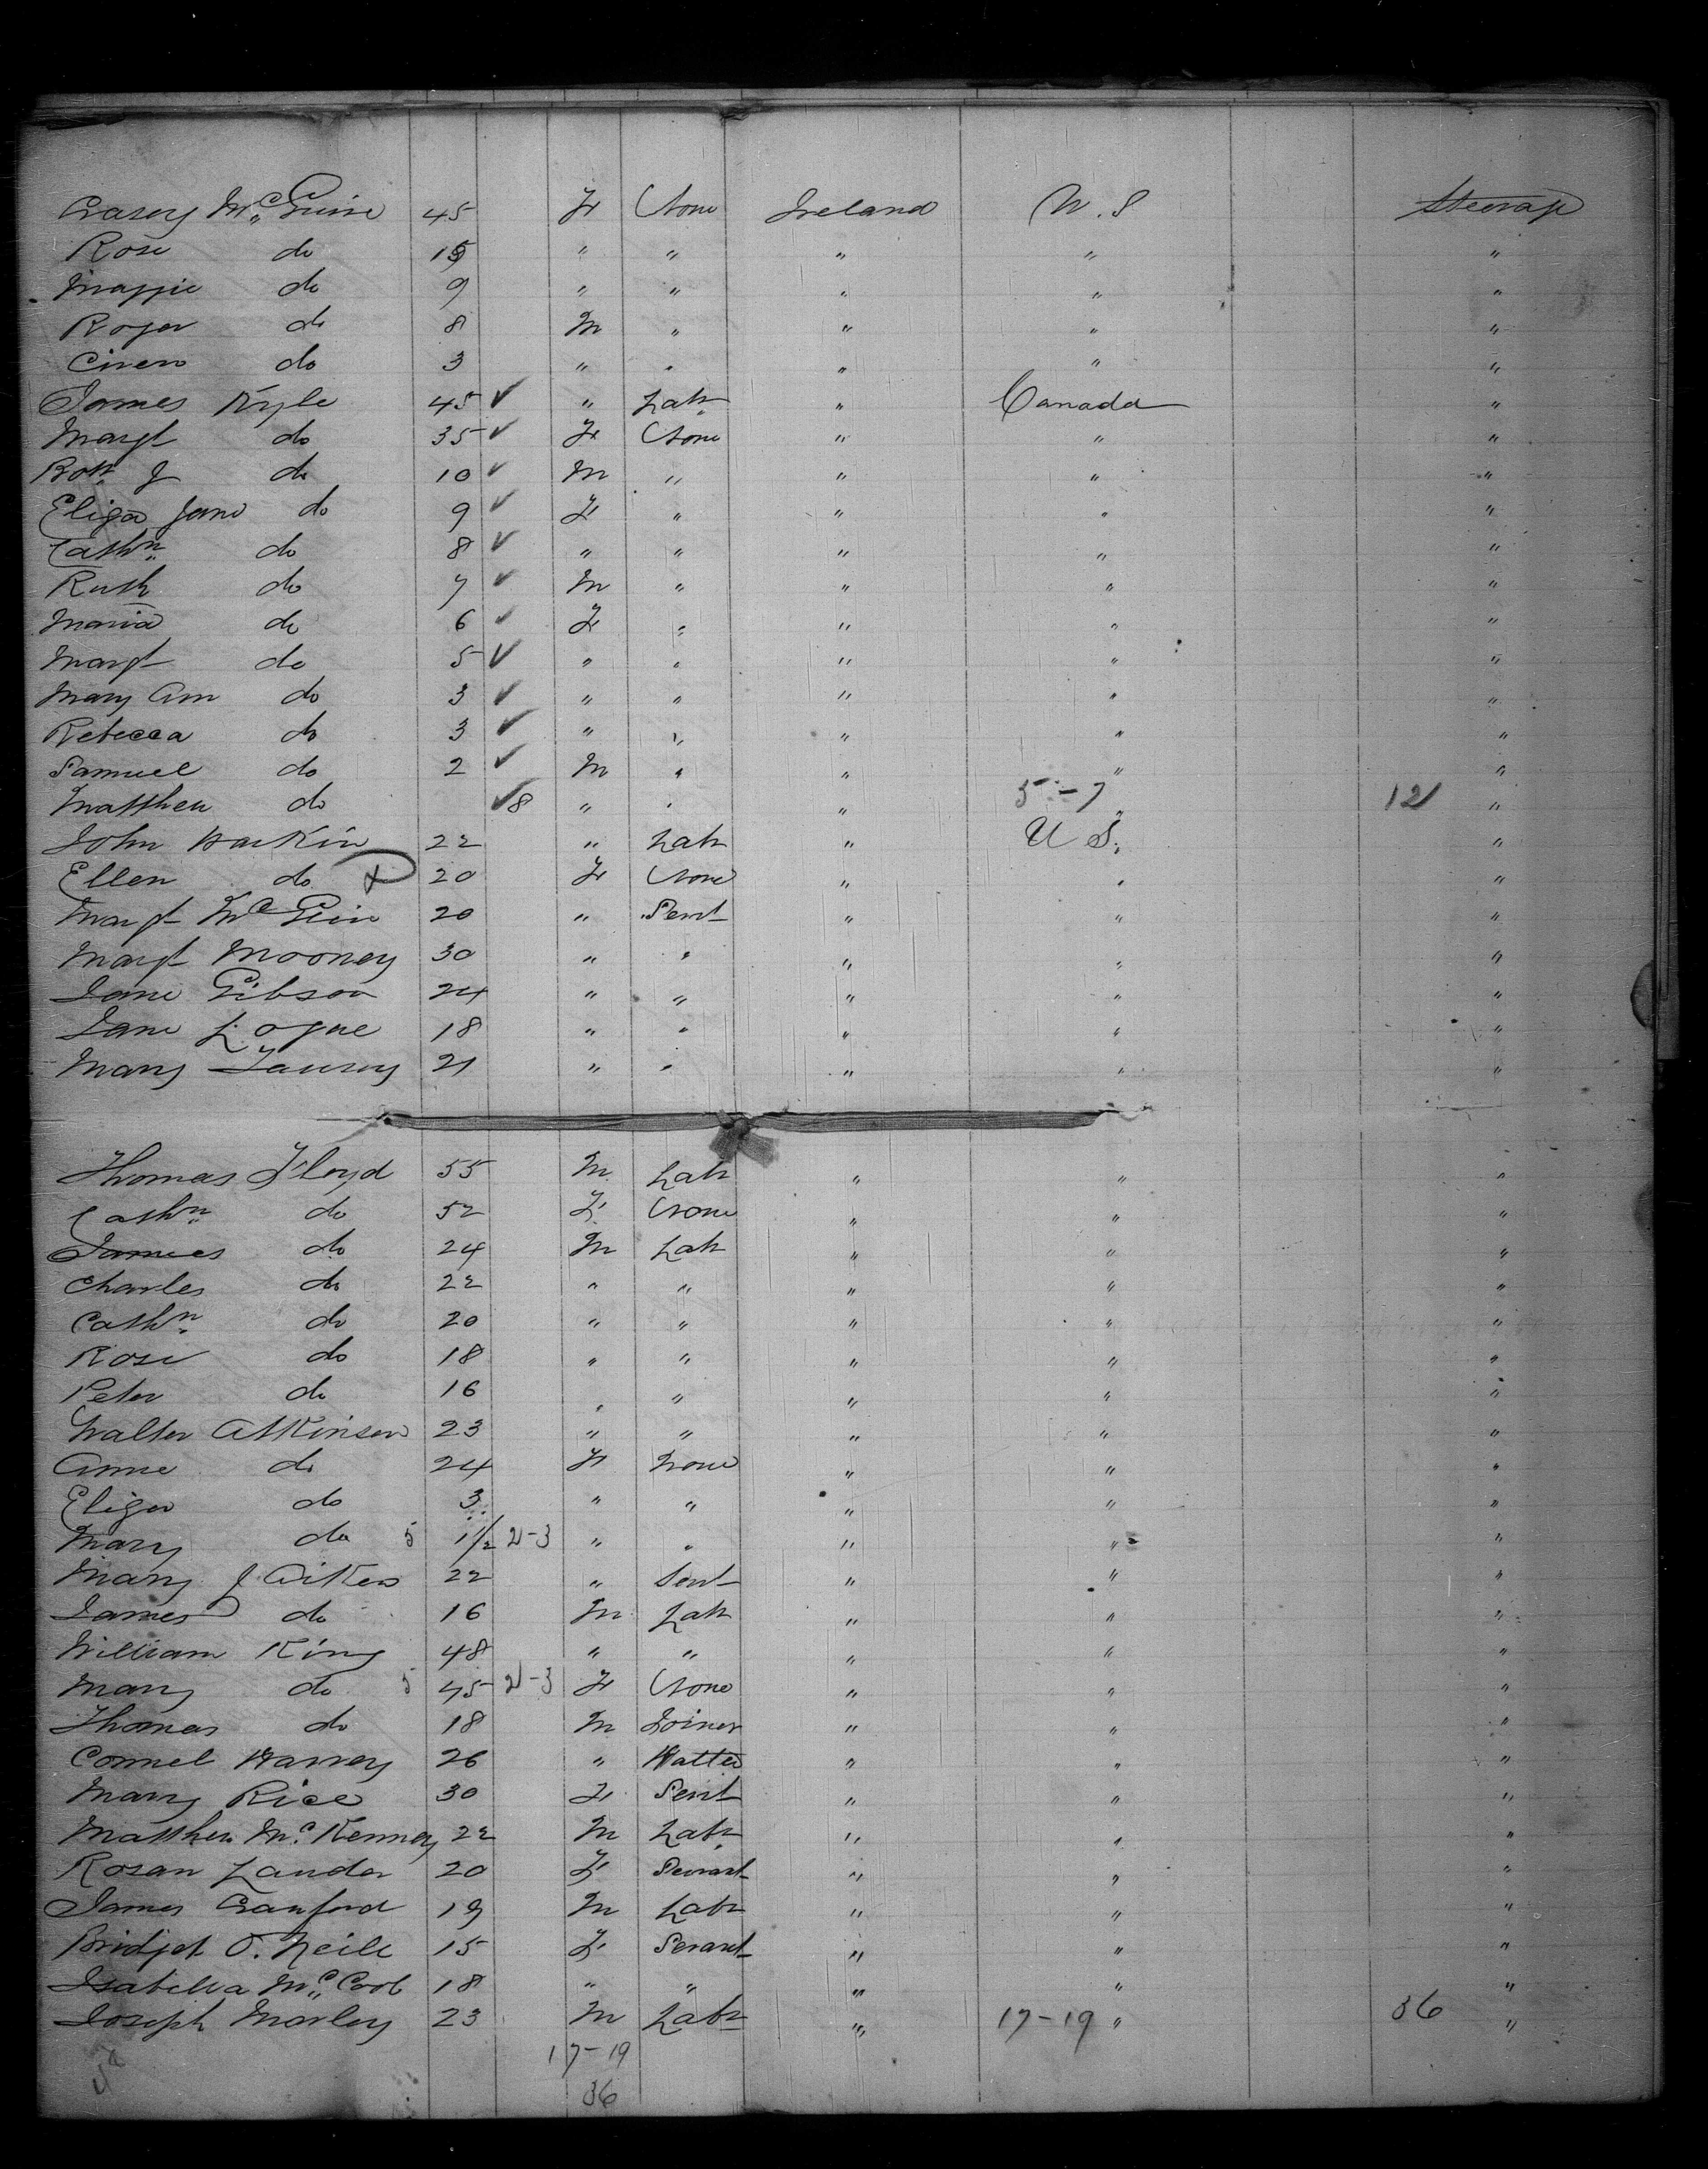 Casey McGuire 45 F None Ireland U.S Steerage
Rose do 15 " " " " "
Maggie do 9 " " " " "
Roger do 8 M " " " "
do 3 " " " " "
James Kyle 45 ✓ " Labr " Canada "
Margt do 35 ✓ F None " " "
Robt J do 10 ✓ M " " " "
Eliza Jane do 9 ✓ F " " " "
Cathn do 8 ✓ " " " " "
Ruth do 7 ✓ M " " " "
Maria do 6 ✓ F " " " "
Margt do 5 ✓ " " " " "
Mary Ann do 3 ✓ " " " " "
Rebecca do 3 ✓ " " " " "
Samuel do 2 ✓ M " " " "
Matthew do ✓ 8 " " " 5-7 " 12 "
John Harkin 22 " Labr " U S. "
Ellen do 20 F None " " "
Margt McGuin 20 " Servt " " "
Margt Mooney 30 " " " " "
Jane Gibson 24 " " " " "
Jane Logue 18 " " " " "
Mary 21 " " " " "
Thomas Floyd 55 M Labr " " "
Cathn do 52 F None " " "
James do 24 M Labr " " "
Charles do 22 " " " " "
Cathn do 20 " " " " "
Rose do 18 " " " " "
Peter do 16 " " " " "
Walter Atkinson 23 " " " " "
Anne do 24 F None " " "
Eliza do 3 " " " " "
Mary do 5 1/2 2-3 " " " " "
Mary J Aiken 22 " Servt " " "
James do 16 M Labr " " "
William King 48 " " " " "
Mary do 5 45 2-3 F None " " "
Thomas do 18 M Joiner " " "
Connel Harvey 26 " Hatter " " "
Mary Rice 30 F Servt " " "
Matthew McKenney 22 M Labr " " "
Rosan Lauder 20 F Servant " " "
James Cranford 19 M Labr " " "
Bridget O'Neill 15 F Servant " " "
Isabella McCool 18 " " " " "
Joseph Morley 23 M Labr " 17-19 " 36 "
17-19
36